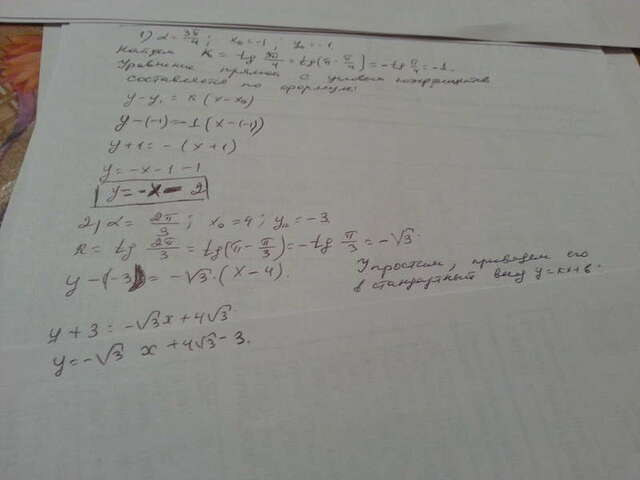 1) α = 3π/4 ; x₀ = -1 ; y₀ = -1
Найдём K = tg 3π/4 = tg(π - π/4) = -tg π/4 = -1.
Уравнение прямой с угловым коэффициентом
составляется по формуле:
y - y₁ = k (x - x₀)
y - (-1) = -1 (x - (-1))
y + 1 = - (x + 1)
y = -x - 1 - 1
y = -x - 2
2) α = 2π/3 ; x₀ = 4 ; y₀ = -3
k = tg 2π/3 = tg(π - π/3) = -tg π/3 = -√3.
y - (-3) = -√3 · (x - 4).
Упростим, приведем его
в стандартный вид y = kx + b.
y + 3 = -√3x + 4√3
y = -√3 x + 4√3 - 3.